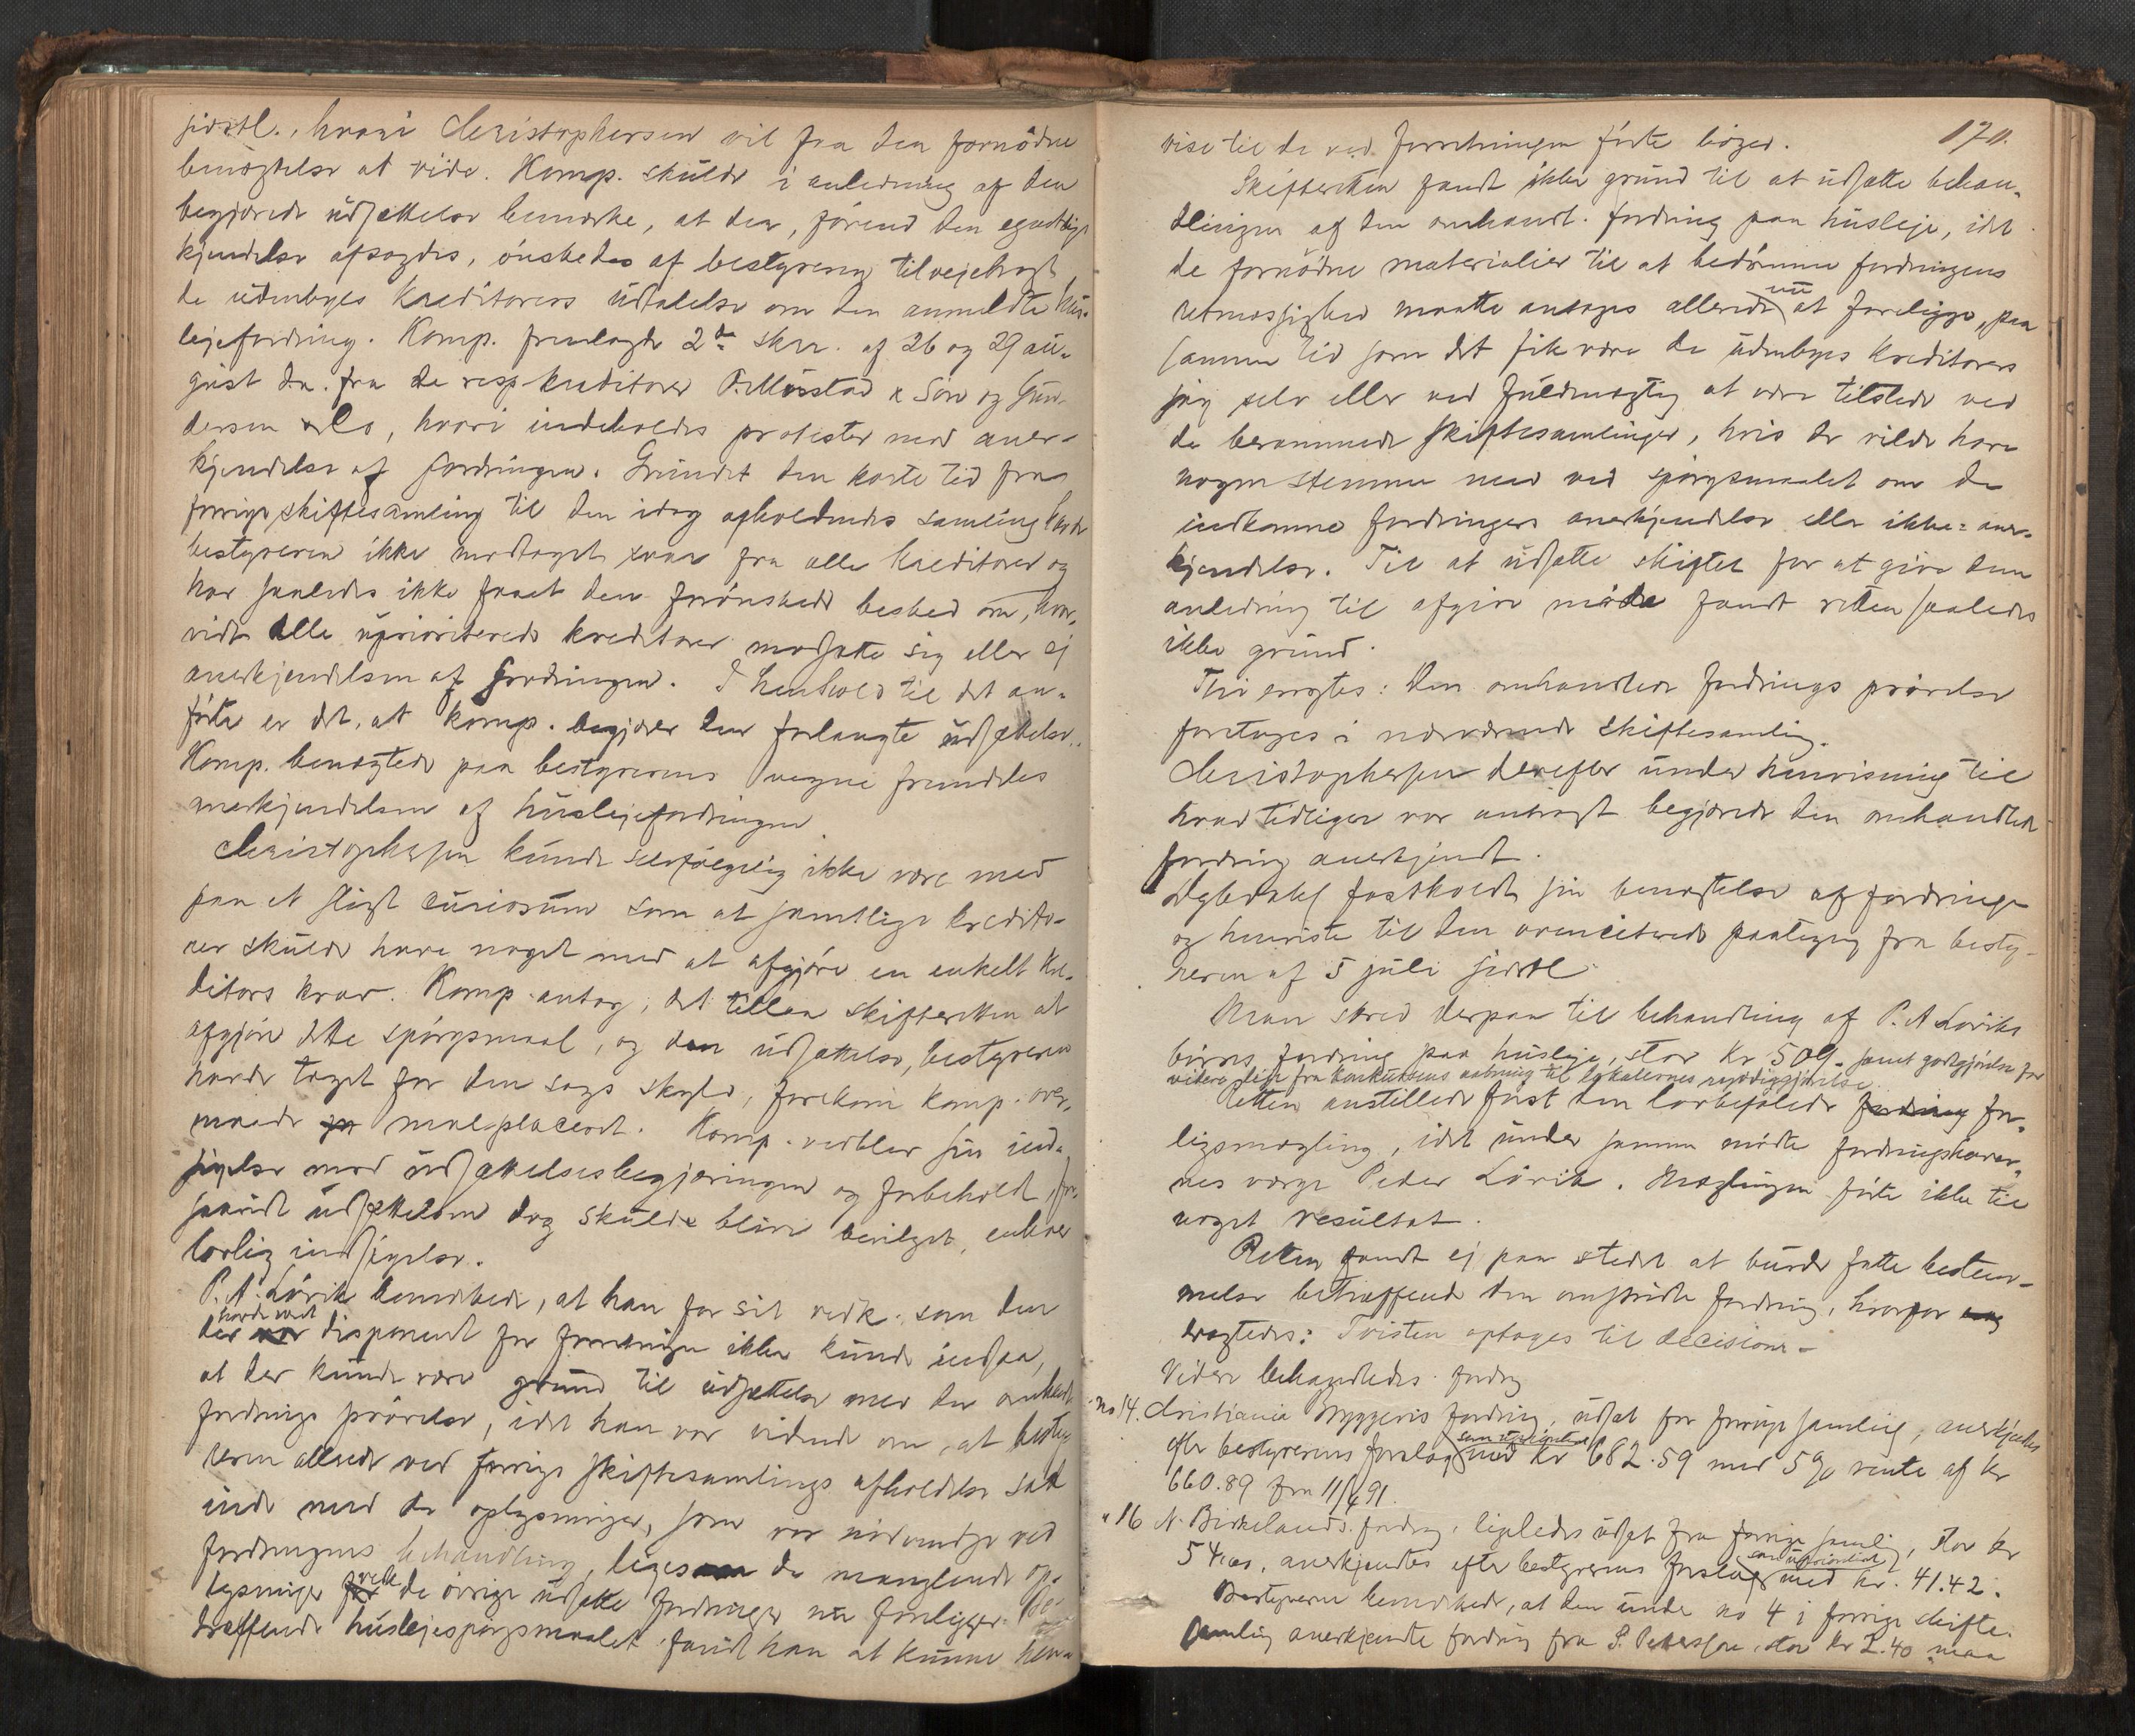 sidstl., hvori Christophersen vil faa den fornödne
benægtelse at vide. Komp. skulde i anledning af den
begjærede udsættelse bemærke, at der, förend den egentlige
kjendelse afsagdes, önskedes af bestyreren tilvejebragt
de udenbyes kreditorers udtalelse om den anmeldte hus-
lejefordring. Komp. fremlagde 2de skr. af 26 og 29 au-
gust d.a. fra de resp. kreditorer O. Mustad & Sön og Gun-
dersen & Co, hvori indeholdes protester mod aner-
kjendelse af fordringen. Grundet den korte tid fra
forrige skiftesamling til den idag afholdendes samling havde
bestyreren ikke modtaget svar fra alle kreditorer og
har saaledes ikke faaet den forönskede besked om, hvor-
vidt alle uprioriterede kreditorer modsætte sig eller ej
anerkjendelsen af fordringen. I henhold til det an-
förte er det, at komp. begjærer den forlangte udsættelse.
Komp. benægtede paa bestyrerens vegne fremdeles
anerkjendelsen af huslejefordringen.
Christophersen kunde selvfölgelig ikke være med
paa et sligt curiosum som at samtlige kredito-
rer skulde have noget med at afgjöre en enkelt kre-
ditors krav. Komp. antog, det tilkom skifteretten at
afgjöre dette spörgsmaal, og den udsættelse, bestyreren
havde taget for den sags skyld, forekom komp. over-
maade malplaceret. Komp. vedblev sin ind-
sigelse mod udsættelsesbegjæringen og forbeholdt, for-
saavidt udsættelsen dog skulde blive bevilget, enhver
lovlig indsigelse.
P. A. Lövik bemærkede, at han for sit vedk. som den
der havde været disponent for forretningen ikke kunde indsaa,
at der kunde være grund til udsættelse med den omhandl.
fordrings prövelse, idet han var vidende om, at besty-
reren allerede ved forrige skiftesamlings afholdelse satt
inde med de oplysninger, som var nödvendige ved
fordringens behandling, ligesom de manglende op-
lysninger vedk. de övrige udsatte fordringer nu foreligger. Be-
træffende huslejespörgsmaalet fandt han at kunne hen-
170.
vise til de ved forretningen förte böger.
Skifteretten fandt ikke grund til at udsætte behan-
dlingen af den omhandl. fordring paa husleje, idet
de fornödne materialier til at bedömme fordringens
retmæssighed maatte antages allerede nu at foreligge, paa
samme tid som det fik være de udenbyes kreditorers
sag selv eller ved fuldmægtig at være tilstede ved
de berammede skiftesamlinger, hvis de vilde have
nogen stemme med ved spörgsmaalet om de
indkomne fordringers anerkjendelse eller ikke-aner-
kjendelse. Til at udsætte skiftet for at give dem
anledning til afgive möde fandt retten saaledes
ikke grund.
Thi eragtes: Den omhandlede fordrings prövelse
foretages i nærværende skiftesamling.
Christophersen derefter under henvisning til
hvad tidligere var anbragt begjærede den omhandlede
fordring anerkjendt.
fastholdt sin benægtelse af fordringen
og henviste til den ovenciterede paategning fra besty-
reren af 5 juli sidstl.
Man skred derpaa til behandling af P. A. Löviks
börns fordring paa husleje, stor kr 509.- samt godtgjörelse for
videre leje fra konkursens aabning til lokalernes ryddiggjörelse.
Retten anstillede först den lovbefalede for-
ligsmægling, idet under samme mödte fordringshaver-
nes værge Peder Lövik. Mæglingen förte ikke til
noget resultat.
Retten fandt ej paa stedet at burde fatte bestem-
melse betræffende den omstridte fordring, hvorfor
eragtedes: Tvisten optages til decision.-
Videre behandledes fordrg
No 14. Kristiania Bryggeris fordring, udsat fra forrige samling, anerkjendtes
efter bestyrerens forslag som uprioriteret med kr 682.59 med 5% rente af kr
660.89 fra 11/4 91.
" 16 N. Birkelands fordrg, ligeledes udsat fra forrige samling, stor kr
54.00, anerkjendtes efter bestyrerens forslag som uprioriteret med kr. 41.42.
Bestyreren bemærkede, at den under no 4 i forrige skifte-
samling anerkjendte fordring fra S. Petersen, stor kr 2.40 maa